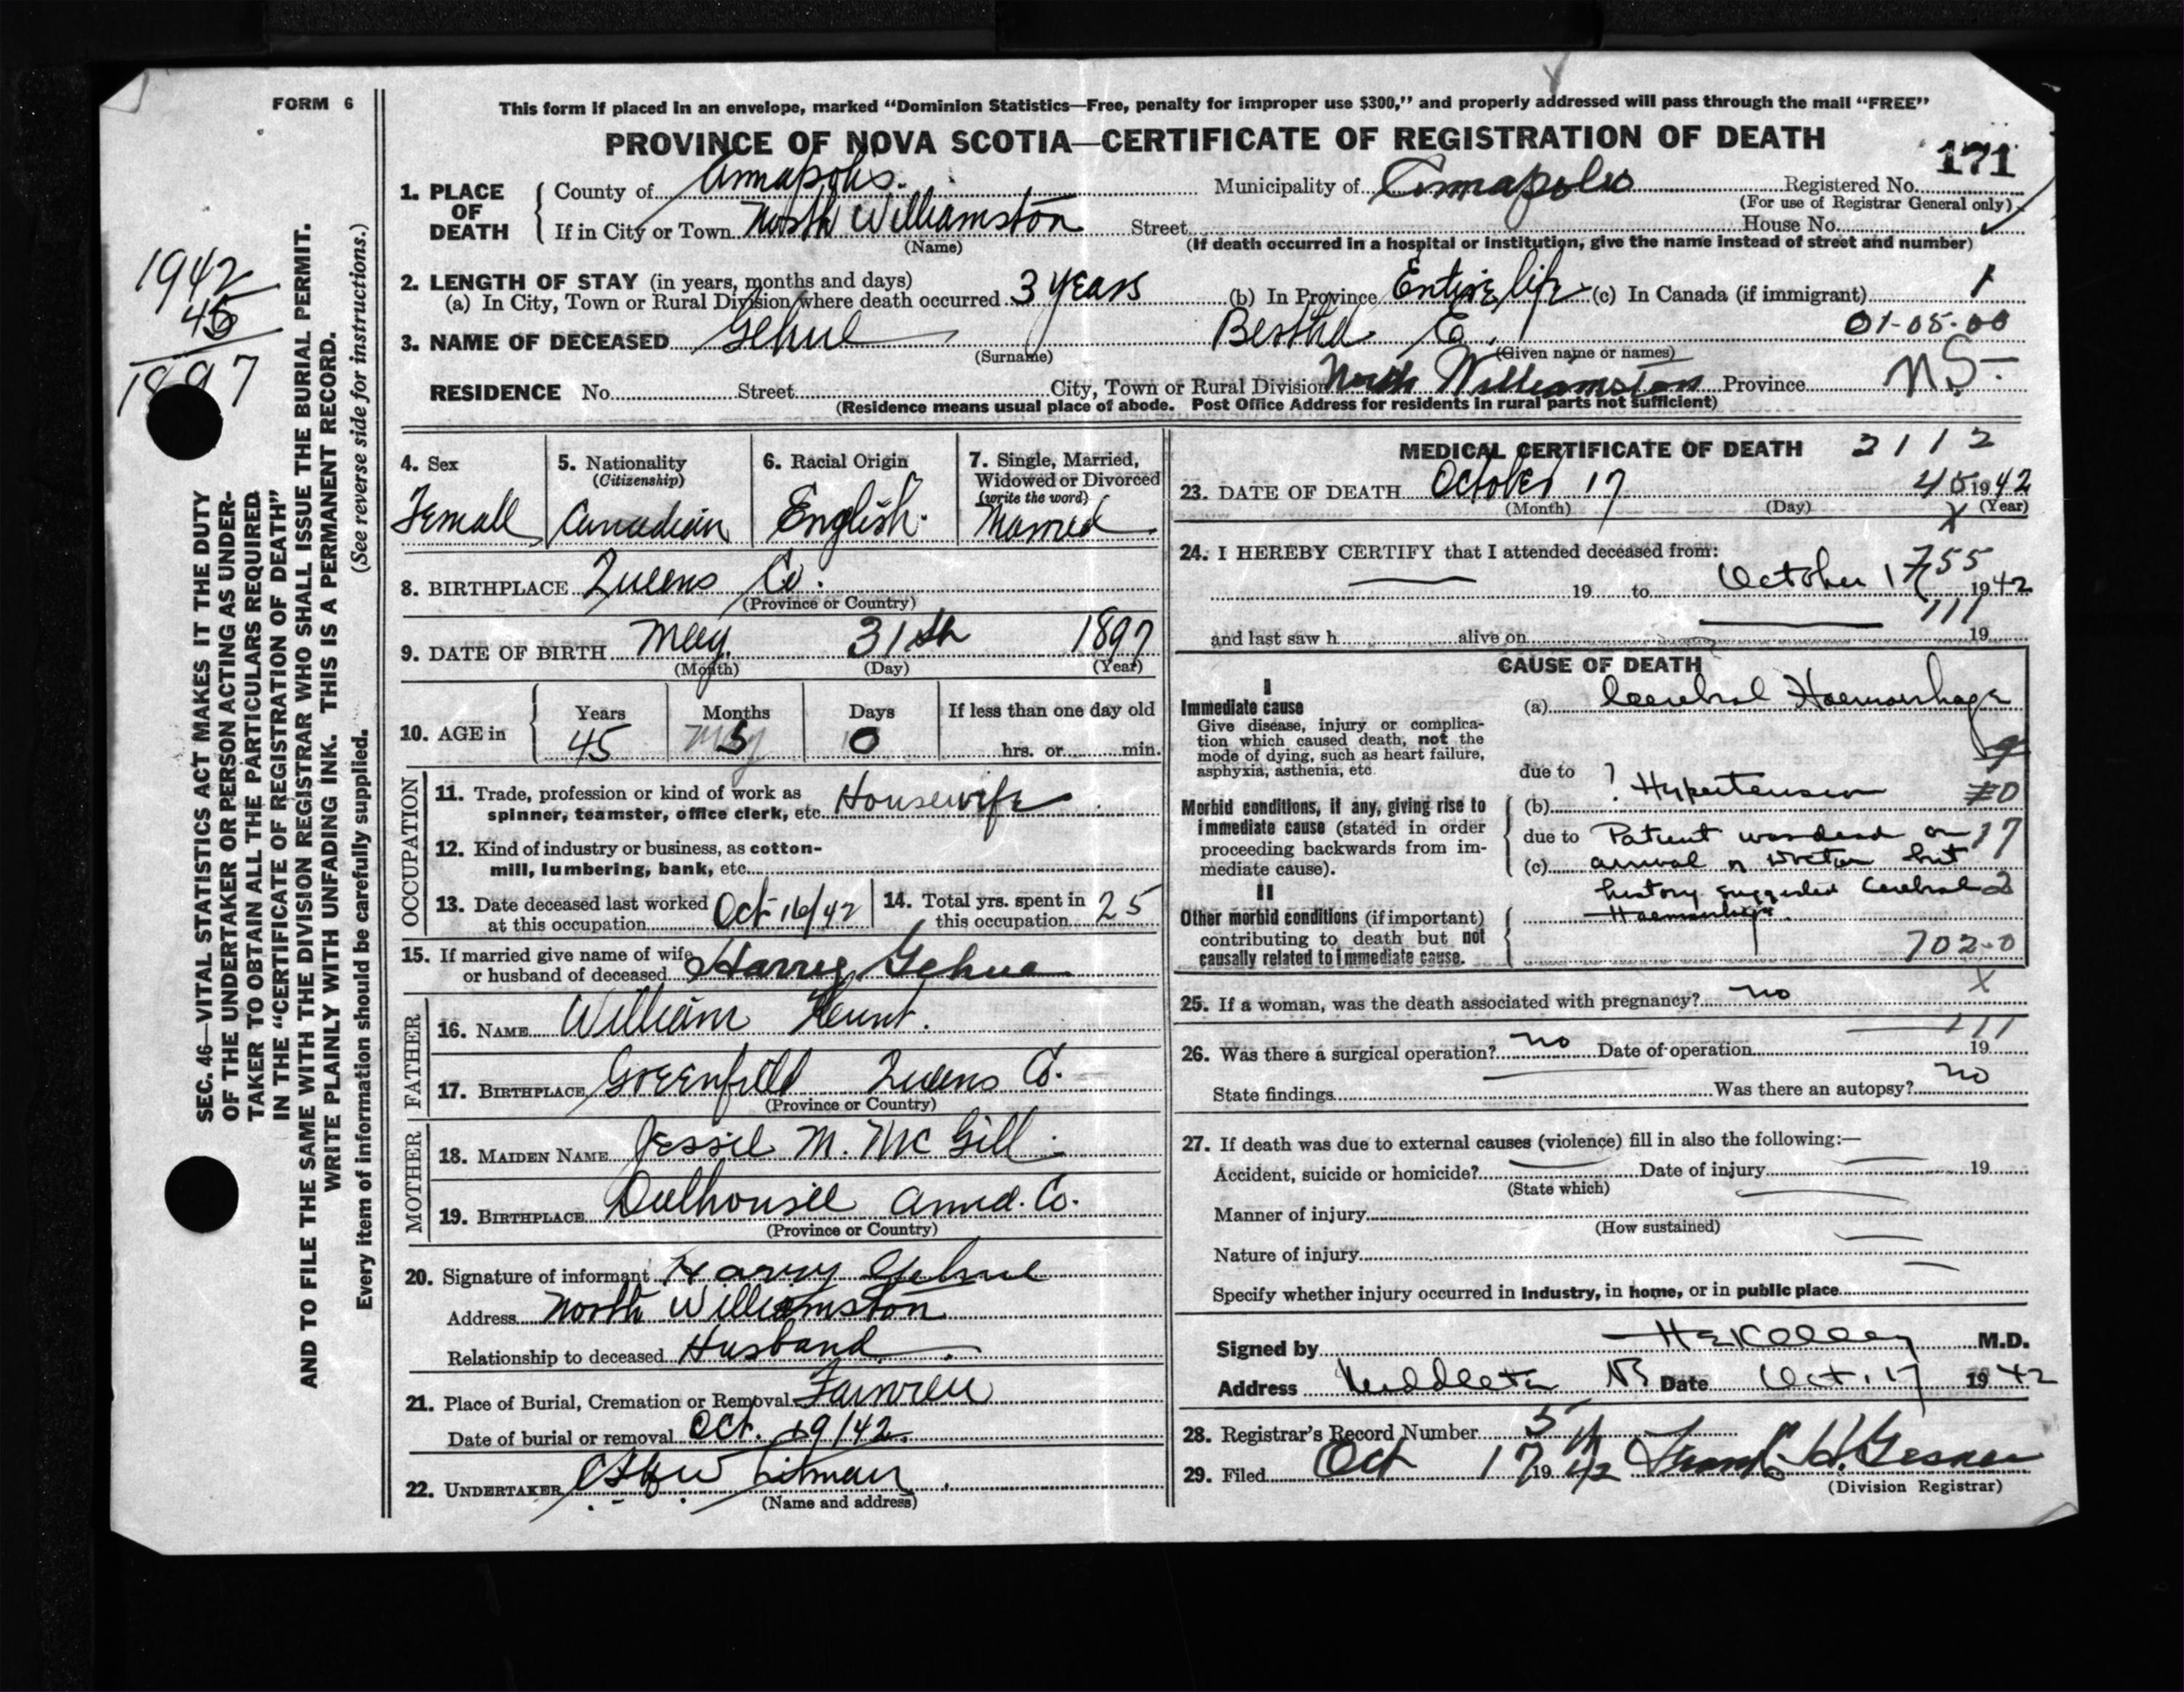 FORM 6
This form if placed in an envelope, marked “Dominion Statistics—Free, penalty for improper use $300,” and properly addressed will pass through the mail “FREE”
PROVINCE OF NOVA SCOTIA—CERTIFICATE OF REGISTRATION OF DEATH
171
1. PLACE OF DEATH County of Annapolis. Municipality of Annapolis Registered No.
(For use of Registrar General only)
If in City or Town North Williamston Street House No.
(Name) (If death occurred in a hospital or institution, give the name instead of street and number)
2. LENGTH OF STAY (in years, months and days)
(a) In City, Town or Rural Division where death occurred 3 years (b) In Province Entire life (c) In Canada (if immigrant) 1
01-05-00
3. NAME OF DECEASED Gehue Bertha E.
(Surname) (Given name or names)
RESIDENCE No. Street City, Town or Rural Division North Williamston Province N.S.
(Residence means usual place of abode. Post Office Address for residents in rural parts not sufficient)
1942
45
1897
SEC. 46—VITAL STATISTICS ACT MAKES IT THE DUTY
OF THE UNDERTAKER OR PERSON ACTING AS UNDER-
TAKER TO OBTAIN ALL THE PARTICULARS REQUIRED
IN THE “CERTIFICATE OF REGISTRATION OF DEATH”
AND TO FILE THE SAME WITH THE DIVISION REGISTRAR WHO SHALL ISSUE THE BURIAL PERMIT.
WRITE PLAINLY WITH UNFADING INK. THIS IS A PERMANENT RECORD.
Every item of information should be carefully supplied. (See reverse side for instructions.)
4. Sex 5. Nationality 6. Racial Origin 7. Single, Married,
(Citizenship) Widowed or Divorced
(write the word)
Female Canadian English. Married
8. BIRTHPLACE Queens Co.
(Province or Country)
9. DATE OF BIRTH May 31st 1897
(Month) (Day) (Year)
10. AGE in Years Months Days If less than one day old
45 5 0 hrs. or min.
OCCUPATION
11. Trade, profession or kind of work as
spinner, teamster, office clerk, etc. Housewife
12. Kind of industry or business, as cotton-
mill, lumbering, bank, etc.
13. Date deceased last worked at this occupation Oct 16/42 14. Total yrs. spent in this occupation 25
15. If married give name of wife
or husband of deceased Harry Gehue
FATHER
16. NAME William Hunt.
17. BIRTHPLACE Greenfield Queens Co.
(Province or Country)
MOTHER
18. MAIDEN NAME Jessie M. McGill
19. BIRTHPLACE Dalhousie Anna. Co.
(Province or Country)
20. Signature of informant Harry Gehue
Address North Williamston
Relationship to deceased Husband
21. Place of Burial, Cremation or Removal
Date of burial or removal Oct. 19/42.
22. UNDERTAKER
(Name and address)
MEDICAL CERTIFICATE OF DEATH 2112
23. DATE OF DEATH October 17 45 1942
(Month) (Day) (Year)
X
24. I HEREBY CERTIFY that I attended deceased from: 755
19 to October 17 1942
111
and last saw h alive on 19
CAUSE OF DEATH
I
Immediate cause
Give disease, injury or complica-
tion which caused death, not the
mode of dying, such as heart failure,
asphyxia, asthenia, etc.
(a) Cerebral Haemorrhage
due to
Morbid conditions, if any, giving rise to
immediate cause (stated in order
proceeding backwards from im-
mediate cause).
(b) ? Hypertension
due to Patient was dead on 17
(c) arrival of Doctor but
history suggested Cerebral 2
Haemorrhage.
II
Other morbid conditions (if important)
contributing to death but not
causally related to immediate cause.
702-0
X
25. If a woman, was the death associated with pregnancy? no
111
26. Was there a surgical operation? no Date of operation 19
State findings Was there an autopsy? no
27. If death was due to external causes (violence) fill in also the following:—
Accident, suicide or homicide? Date of injury 19
(State which)
Manner of injury
(How sustained)
Nature of injury
Specify whether injury occurred in industry, in home, or in public place
Signed by H E Kelley M.D.
Address Middleton NS Date Oct. 17 1942
28. Registrar's Record Number 5
29. Filed Oct 17th 1942 Frank H. Gesner
(Division Registrar)